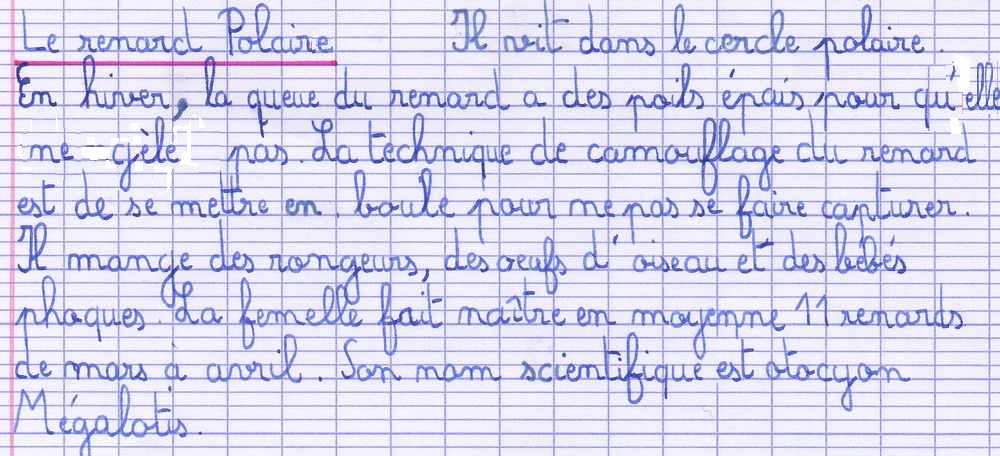 Le renard Polaire Il vit dans le cercle polaire.
En hiver, la queue du renard a des poils épais pour qu'elle
ne gèle pas. La technique de camouflage du renard
est de se mettre en boule pour ne pas se faire capturer.
Il mange des rongeurs, des oeufs d'oiseau et des bébés
phoques. La femelle fait naître en moyenne 11 renards
de mars à avril. Son nom scientifique est otocyon
Mégalotis.